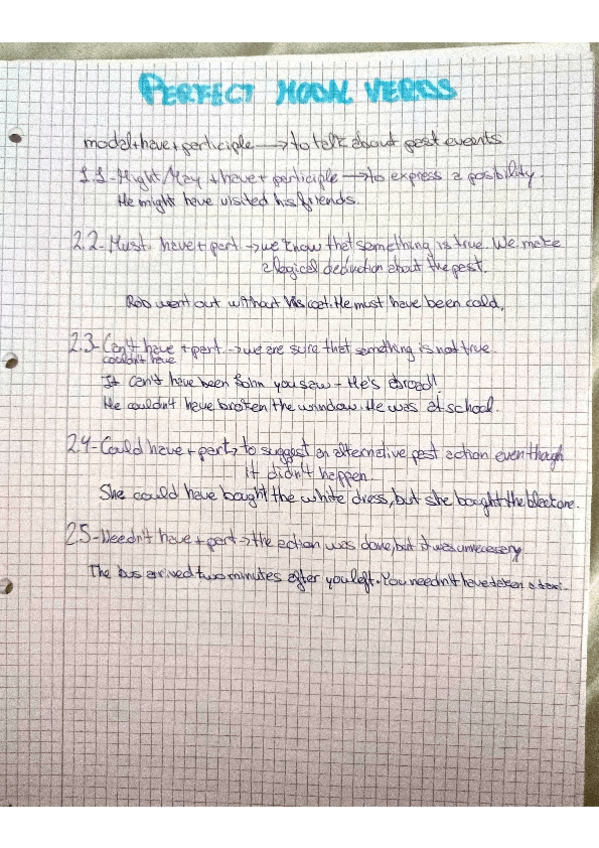 PERFECT MODAL VERBS
modal+have+participle → to talk about past events
1.1-Might/May + have + participle → to express a posibility.
He might have visited his friends.
2.2-Must have + part. → we know that something is true. We make
a logical deduction about the past.
Rob went out without his coat. He must have been cold.
2.3-Can't have + part. → we are sure that something is not true
couldn't have
It can't have been John you saw - He's abroad!
He couldn't have broken the window. He was at school.
2.4-Could have + part → to suggest an alternative past action even though
it didn't happen.
She could have bought the white dress, but she bought the black one.
2.5-Needn't have + part → the action was done, but it was unnecessary
The bus arrived two minutes after you left. You needn't have taken a taxi.